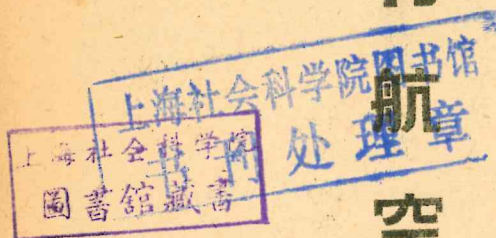 航
空
上海社会科学院图书馆
书刊处理章
上海社会科学院
圖書館藏書